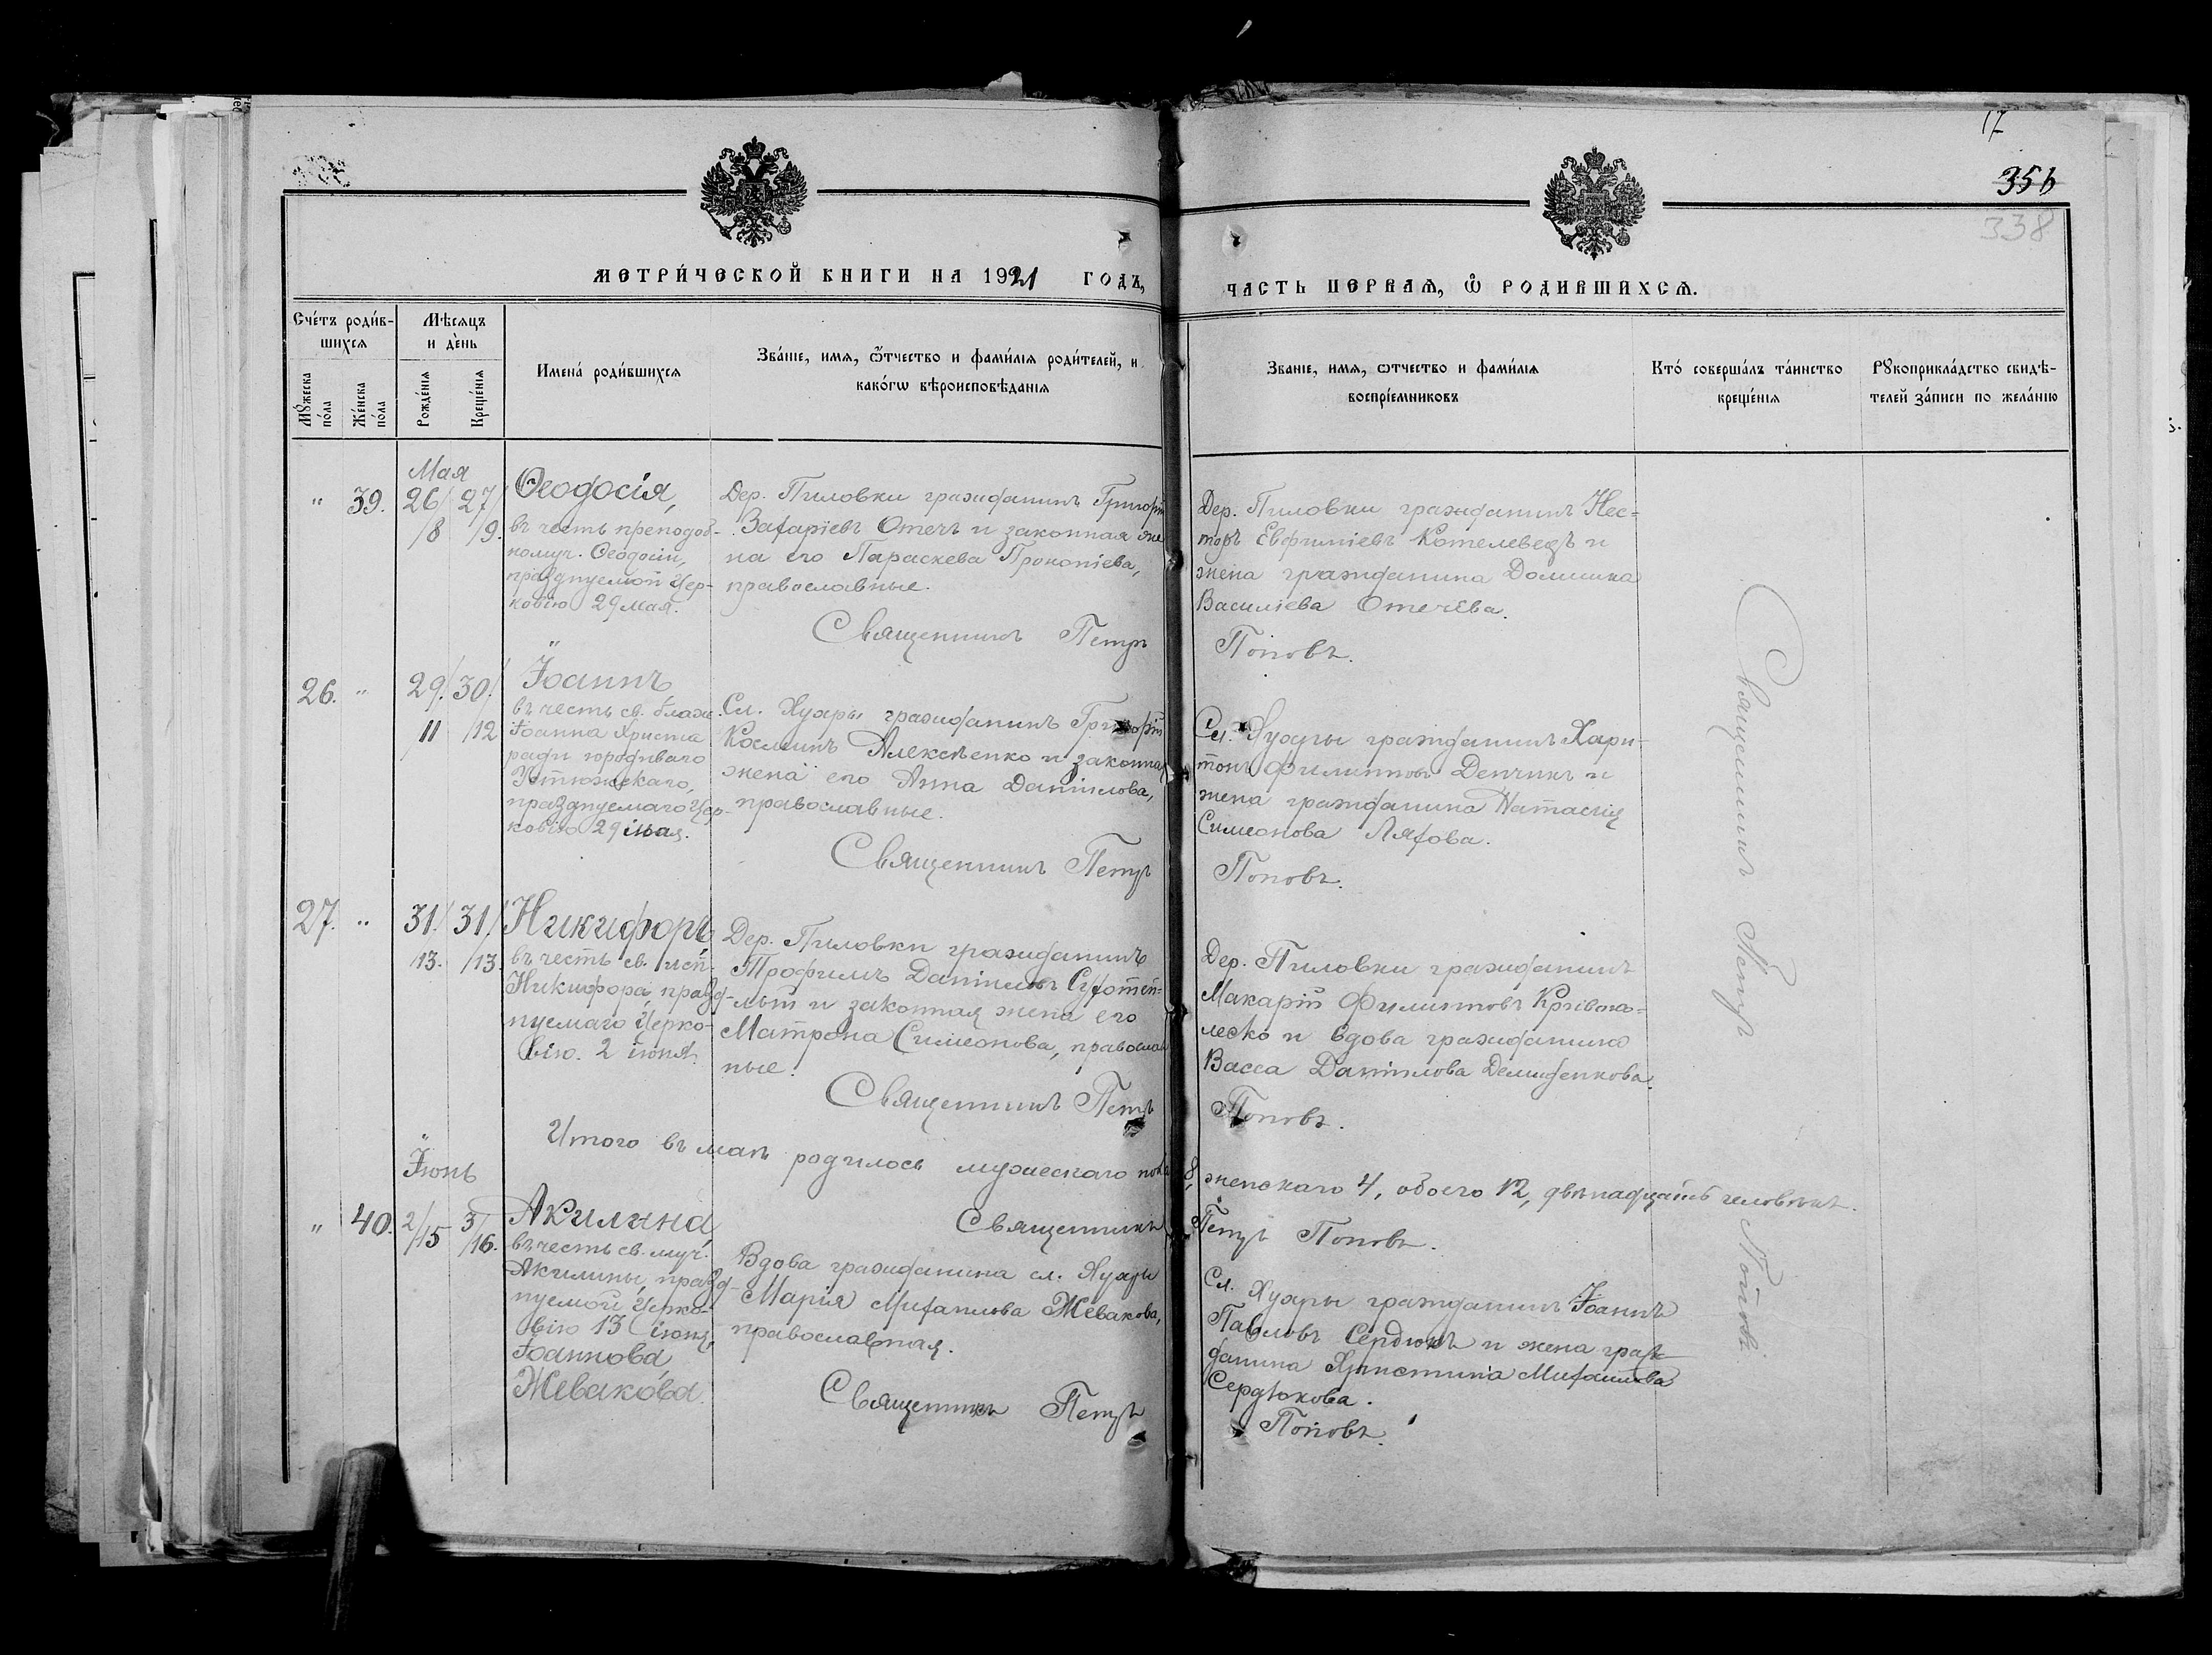 17
356
338
МЕТРИ́ЧЕСКОЙ КНИГИ НА 1921 ГОДЪ,
ЧАСТЬ ПЕРВАѦ, Ѽ РОДИВШИХСѦ.
Сче́тъ роди́в-
шихсѧ
Мѣсѧцъ
и де́нь
Мꙋ́жеска
по́ла
Же́нска
по́ла
Рожде́нїѧ
Креще́нїѧ
Имена́ роди́вшихсѧ
Зва́нїе, имѧ, ѻ҆́тчество и фами́лїѧ роди́телей, и
како́гѡ вѣроисповѣ́данїѧ
Званїе, имѧ, ѿчество и фами́лїѧ
воспрїе́мниковъ
Кто́ соверша́лъ та́инство
креще́нїѧ
Рꙋкоприкла́дство свидѣ́-
телей за́писи по жела́нїю
Мая
" 39. 26/8 27/9.
Ѳеодосія,
въ честь преподоб-
номуч. Ѳеодосіи,
празднуемой Цер-
ковію 29 мая.
Дер. Пиловки гражданинъ Григорій
Захаріевъ Отечъ и законная же
на его Параскева Прокопіева,
православные.
Священникъ Петръ
Дер. Пиловки гражданинъ Нес-
торъ Евфиміевъ Котелевецъ и
жена гражданина Домника
Василіева Отечева.
Поповъ.
26. " 29/11 30/12
Іоаннъ
въ честь св. блаж.
Іоанна Христа
ради юродиваго
Устюжскаго,
празднуемаго Цер-
ковію 29 мая.
Сл. Хухры гражданинъ Григорій
Козминъ Алексѣенко и законная
жена его Анна Даніилова,
православные.
Священникъ Петръ
Сл. Хухры гражданинъ Хари-
тонъ Филипповъ Демчикъ и
жена гражданина Наталія
Симеонова Ляхова.
Поповъ.
27. " 31/13. 31/13.
Никифоръ,
въ честь св. исп.
Никифора, празд-
нуемаго Церко-
вію 2 іюня.
Дер. Пиловки гражданинъ
Трофимъ Даніиловъ Сухотеп-
лый и законная жена его
Матрона Симеонова, православ
ные.
Священникъ Петръ
Дер. Пиловки гражданинъ
Макарій Филипповъ Кривоко-
леско и вдова гражданина
Васса Даніилова Демиденкова.
Поповъ.
Итого въ маѣ родилось мужескаго пола 8, женскаго 4, обоего 12, двѣнадцать человѣкъ.
Священникъ Петръ Поповъ.
Іюнь
" 40. 2/15 3/16.
Акилина,
въ честь св. муч.
Акилины, празд-
нуемой Церко-
вію 13 іюня,
Іоаннова
Жевакова.
Вдова гражданина сл. Хухры
Марія Михаилова Жевакова,
православная.
Священникъ Петръ
Сл. Хухры гражданинъ Іоаннъ
Павловъ Сердюкъ и жена граж
данина Христина Михаилова
Сердюкова.
Поповъ.
Священникъ Петръ Поповъ